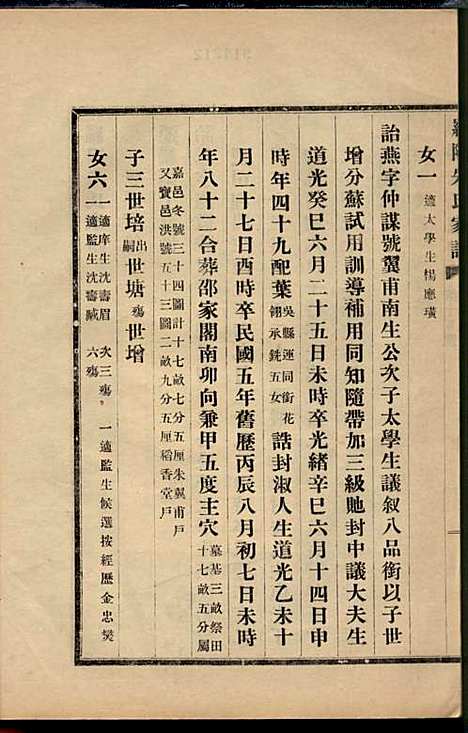 女一適太學生楊應璜
詒燕字仲謀號翼甫南生公次子太學生議叙八品銜以子世
增分蘇試用訓導補用同知隨帶加三級貤封中議大夫生
道光癸巳六月二十五日未時卒光緒辛巳六月十四日申
時年四十九配葉吳縣蓮同銜花翎承銑五女誥封淑人生道光乙未十
月二十七日酉時卒民國五年舊歷丙辰八月初七日未時
年八十二合葬邵家閣南卯向兼甲五度主穴墓基三畝祭田十七畝五分屬
嘉邑冬號三十四圖計十七畝七分五厘朱翼甫戶
又寶邑洪號五十三圖二畝九分五厘稻香堂戶
子三世培出嗣世塘殤世增
女六一適庠生沈壽眉 次三殤 一適監生候選按經歷金忠爕
一適監生沈壽臧 六殤